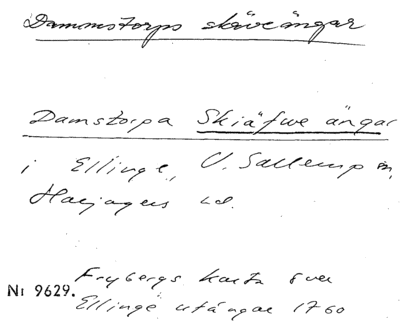 Dammstorps skäveängar
Damstorpa Skiäfwe ängar
i Ellinge, V. Sallerup sn,
Harjagers hd.
Frybergs karta över
Nr 9629. Ellinge utängar 1760